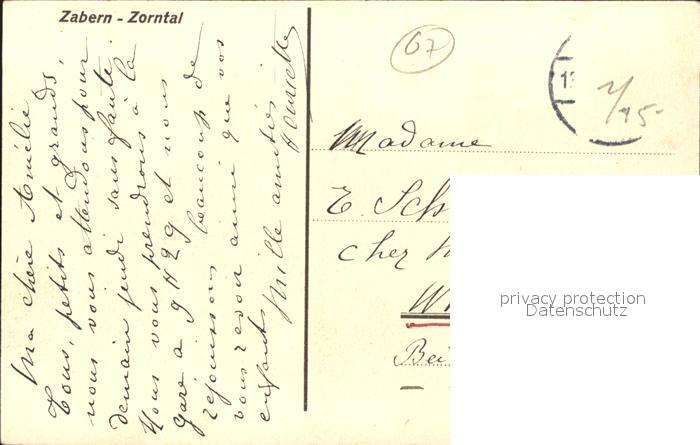 Zabern - Zorntal
Ma chère Amélie
Tous, petits et grands,
nous vous attendons pour
demain jeudi sans faute.
Nous vous prendrons à la
gare à 9 H 29 et nous
réjouissons beaucoup de
vous revoir ainsi que vos
enfants. Mille amitiés
67
1
2/15-
Madame
E. Sch
chez
W
Bei
privacy protection
Datenschutz